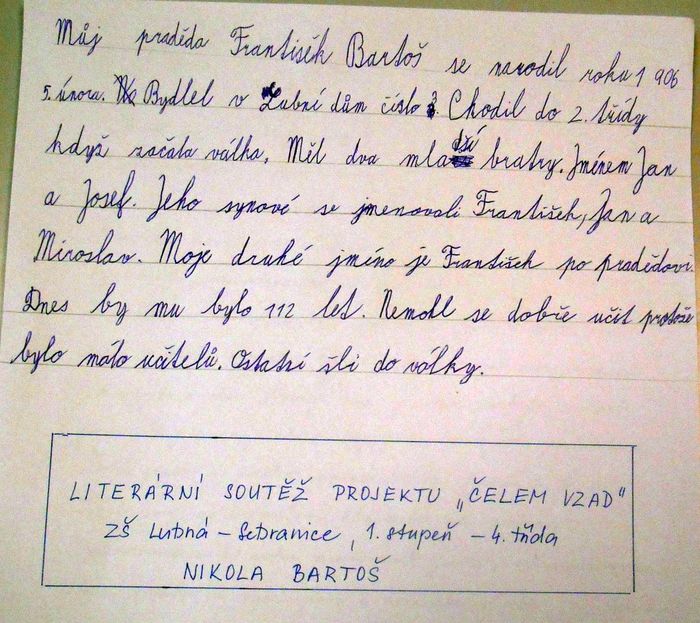 Můj praděda František Bartoš se narodil roku 1 906
5. února. Bydlel v Lubní dům číslo 3. Chodil do 2. třídy
když začala válka. Měl dva mladší bratry. Jménem Jan
a Josef. Jeho synové se jmenovali František, Jan a
Miroslav. Moje druhé jméno je František po pradědovi.
Dnes by mu bylo 112 let. Nemohl se dobře učit protože
bylo málo učitelů. Ostatní šli do války.
LITERÁRNÍ SOUTĚŽ PROJEKTU „ČELEM VZAD"
ZŠ Lubná - Sebranice, 1. stupeň - 4. třída
NIKOLA BARTOŠ